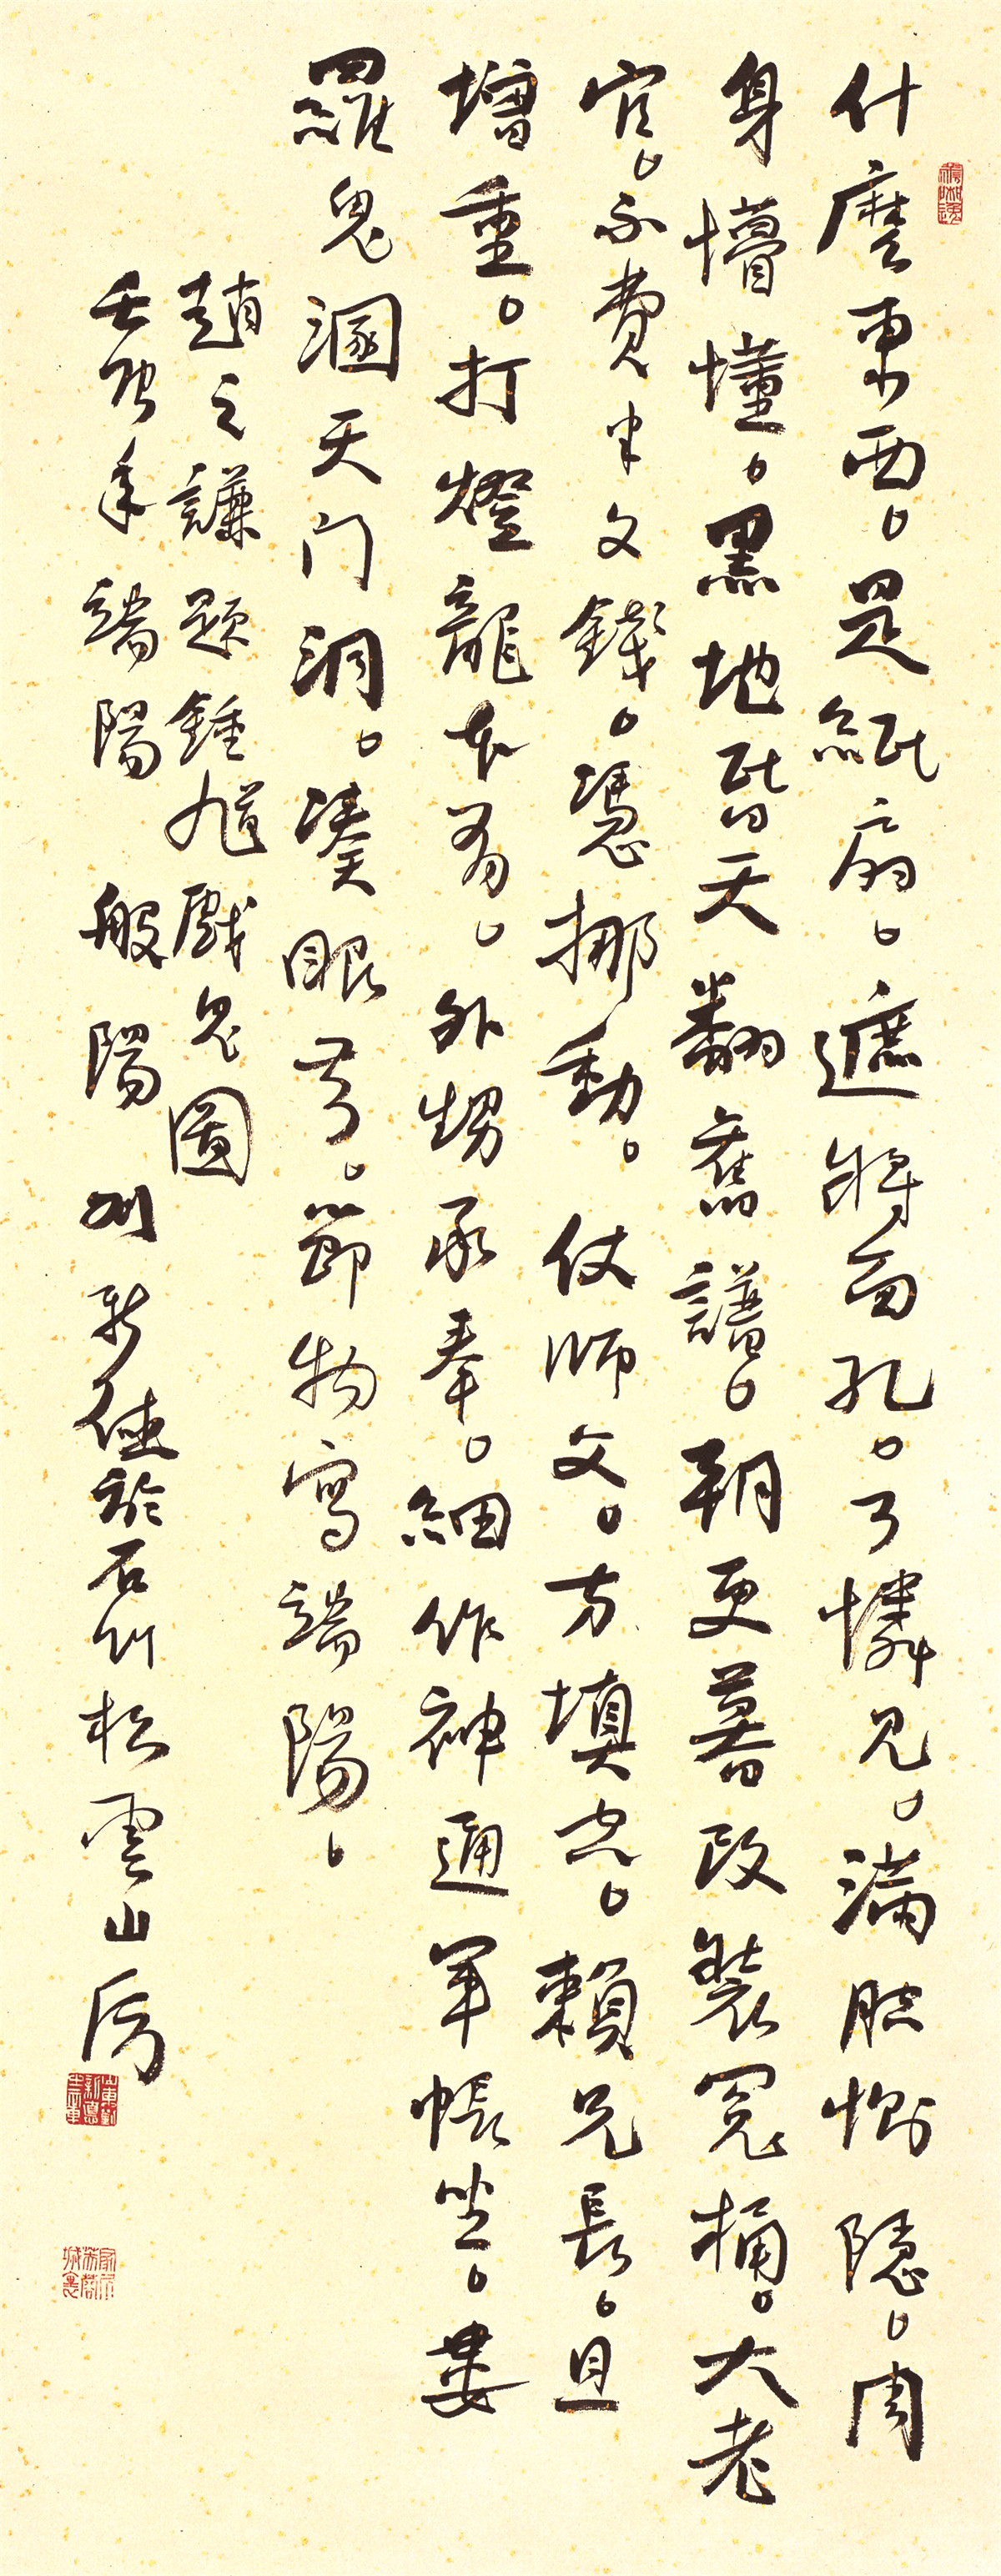 什麼東西。是紙扇。遮將面孔。可憐見。滿腔惻隱。周
身懵懂。黑地昏天翻舊譜。朝更暮改裝冤桶。大老
官。不費半文錢。憑挪動。仗師文。方填空。賴兄長。且
增重。打燈龍本為。外甥承奉。細作神通軍帳坐。婁
羅鬼溷天門洞。湊眼前。節物寫端陽。
趙之謙題鍾馗戲鬼圖
年端陽 般陽刘新德於石竹松雲山房